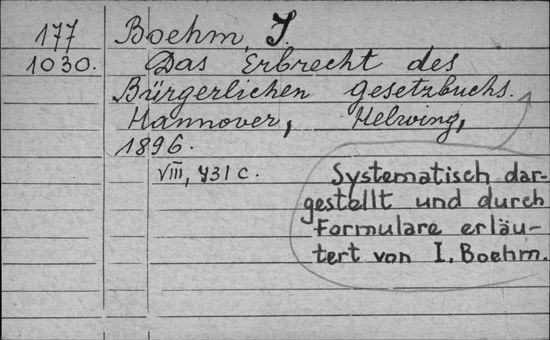 177
1030.
Boehm, J.
Das Erbrecht des
Bürgerlichen Gesetzbuchs.
Hannover, Helwing,
1896.
VIII, 431 c.
Systematisch dar-
gestellt und durch
Formulare erläu-
tert von I. Boehm.